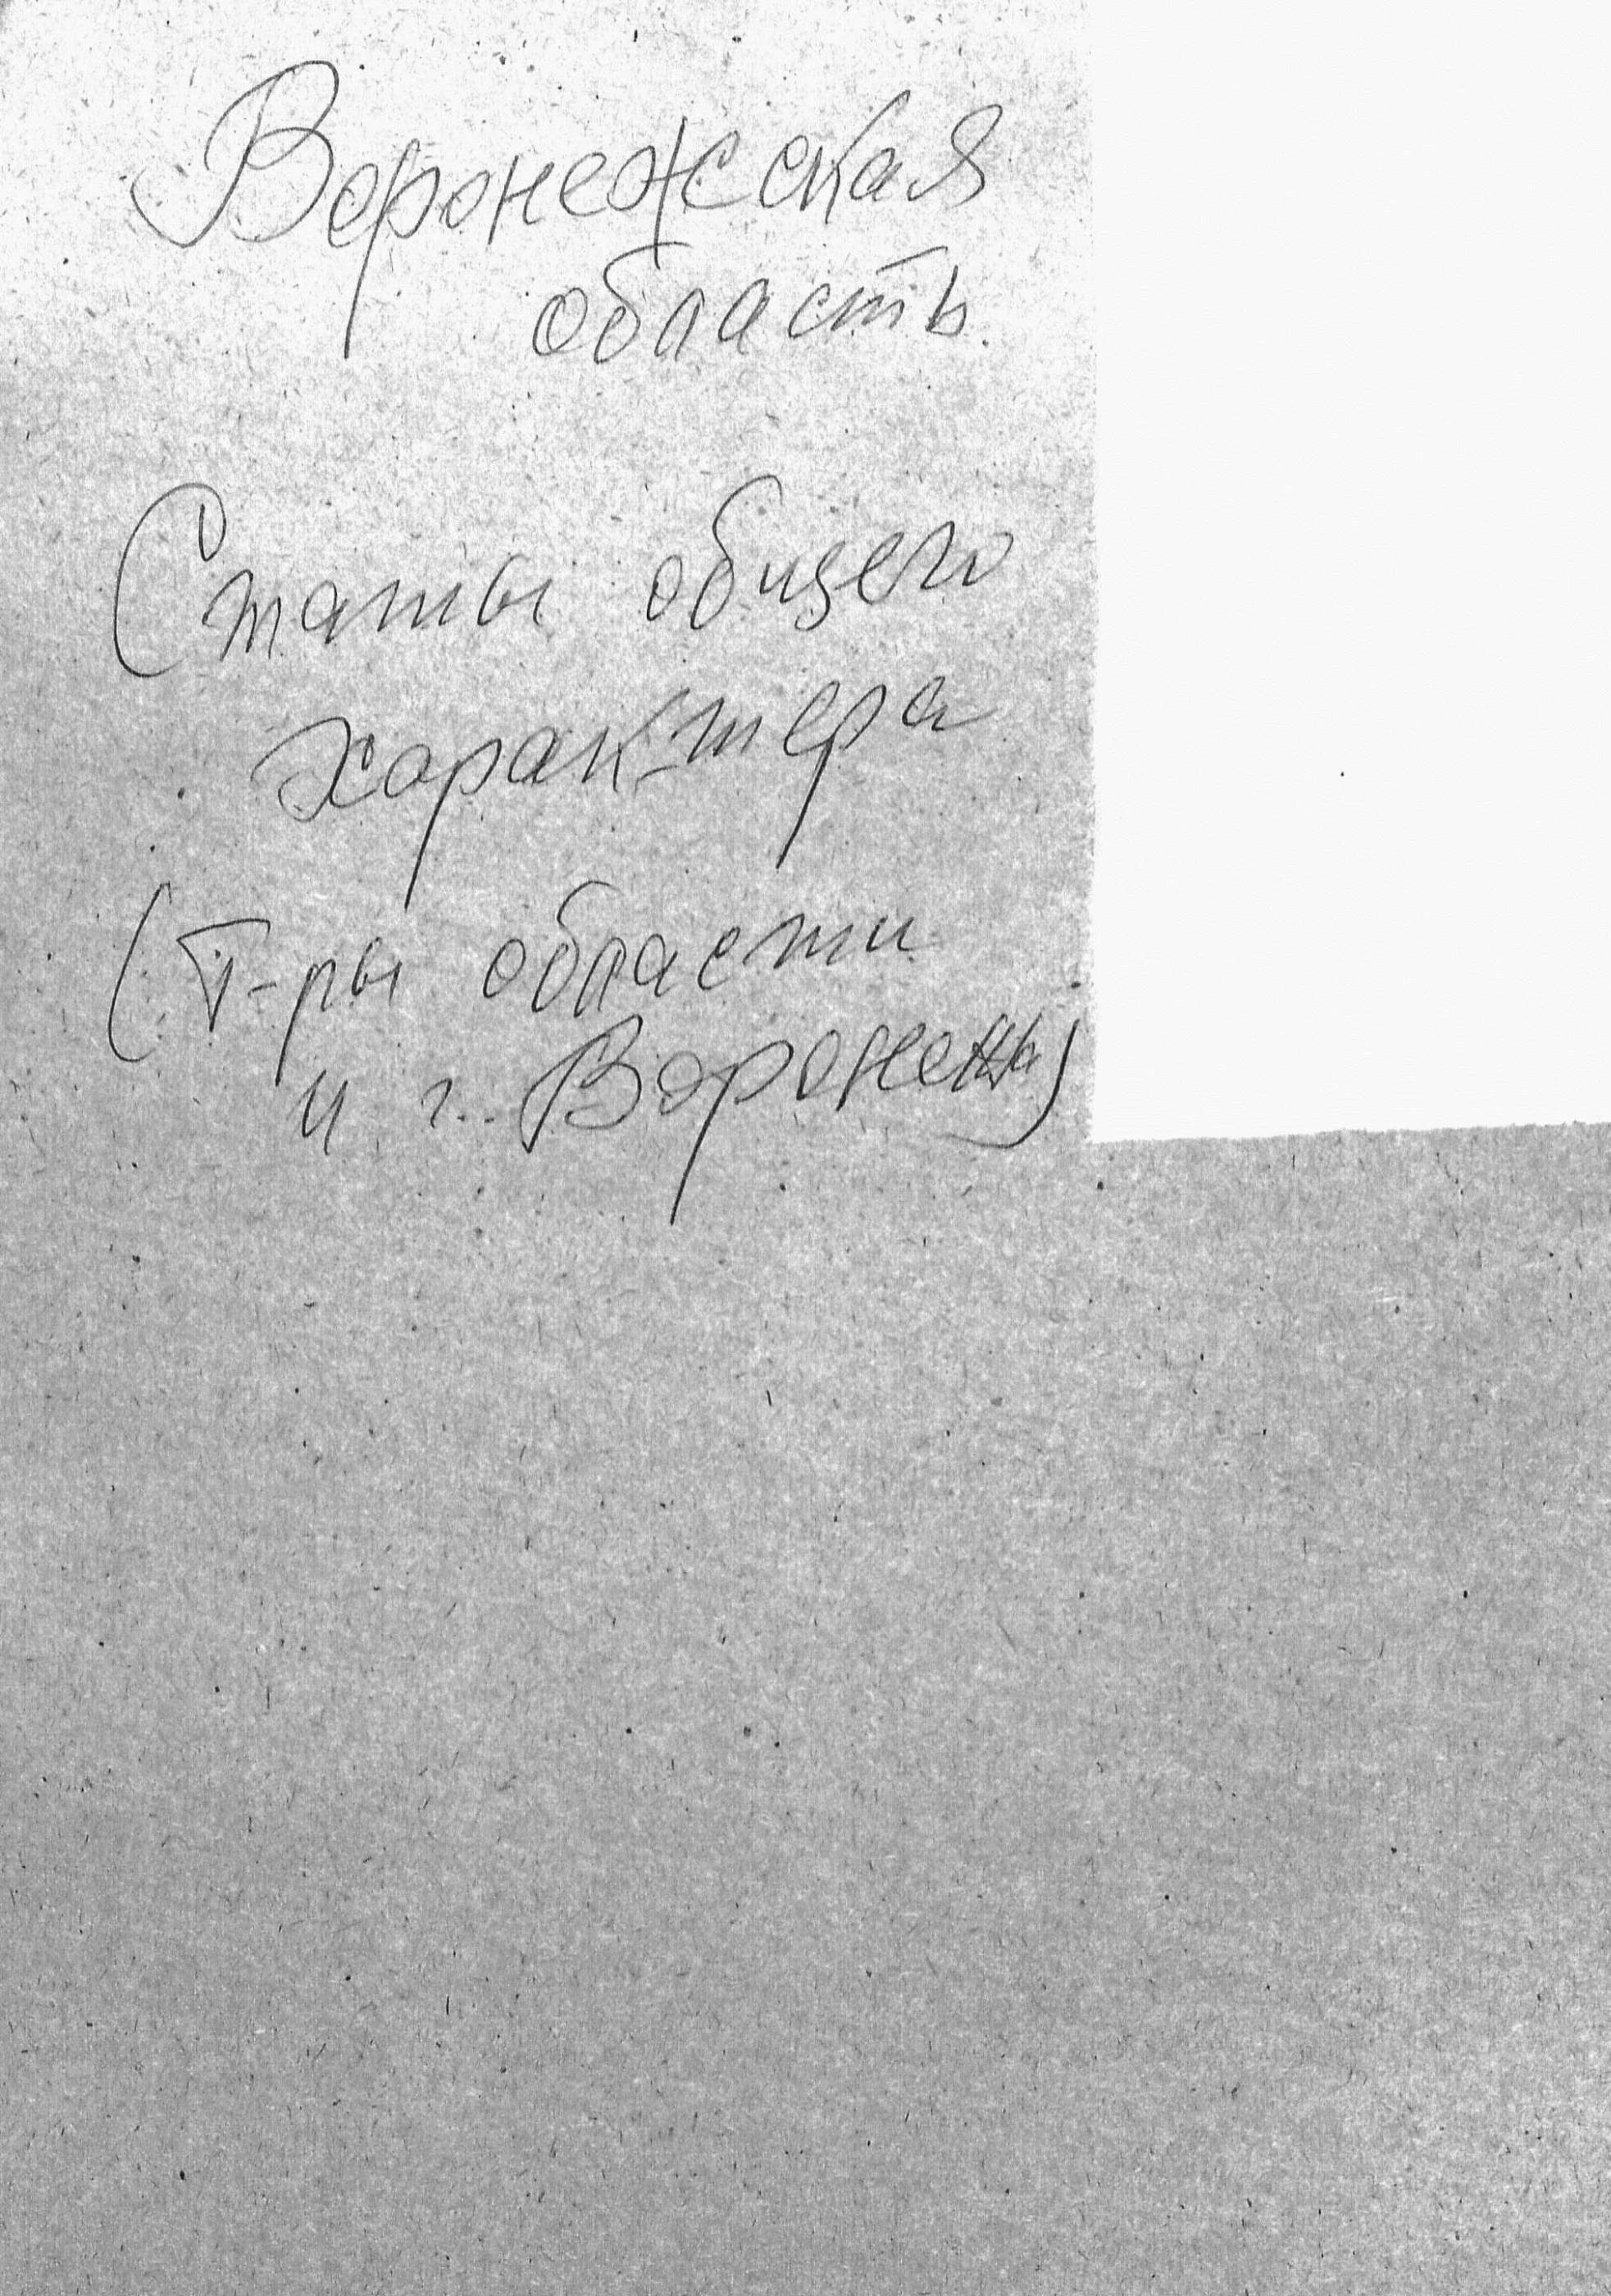 Воронежская
область.
Статьи общего
характера
(Т-ры области
и г. Воронежа)